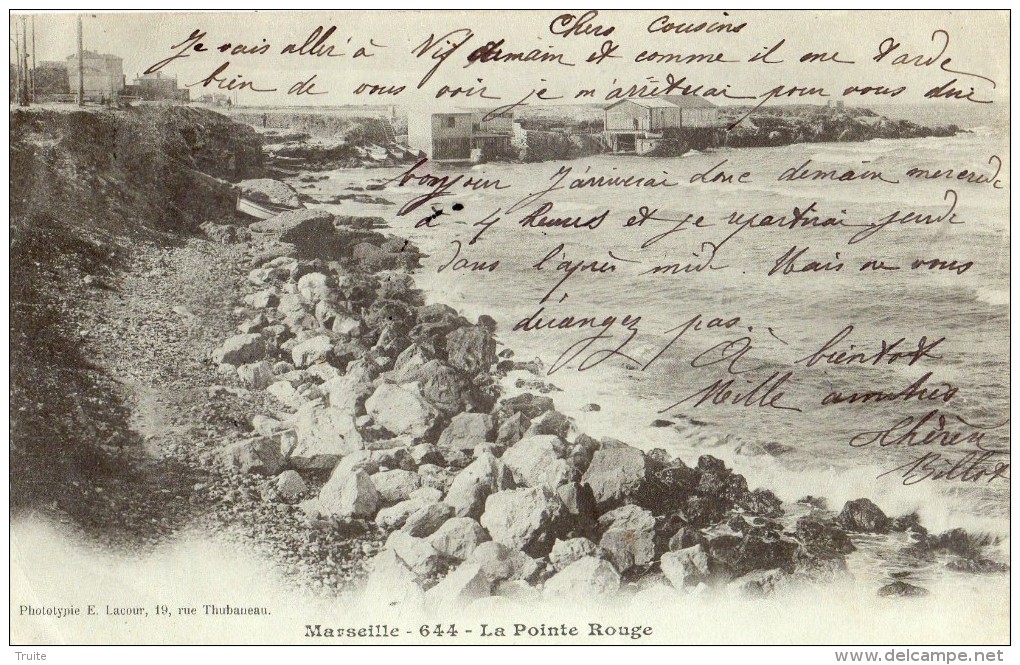 Chers Cousins
Je vais aller à Vif demain et comme il me tarde
bien de vous voir je m'arrêterai pour vous dire
bonjour J'arriverai donc demain mercredi
à 4 heures et je repartirai jeudi
dans l'après midi. Mais ne vous
dérangez pas. A bientôt
Mille amitiés
Billot
Phototypie E. Lacour, 19, rue Thubaneau.
Marseille - 644 - La Pointe Rouge
http://www.delcampe.net
Truite